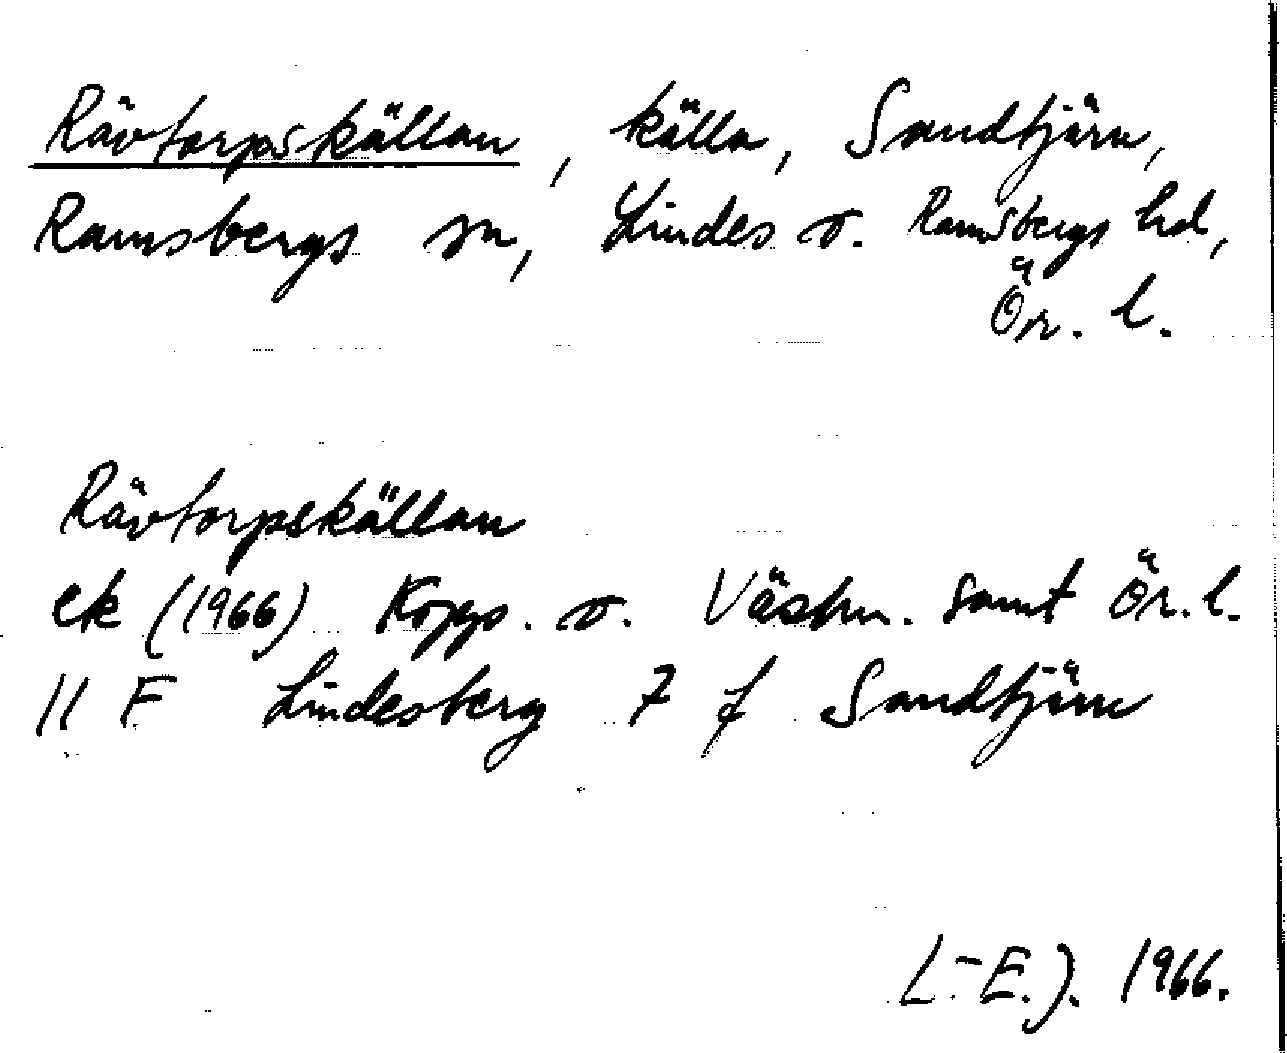 Rävtorpskällan, källa, Sandtjärn,
Ramsbergs sn, Lindes o. Ramsbergs hd,
Ör. l.
Rävtorpskällan
ek (1966) Kopp. o. Västm. samt Ör. l.
11 F Lindesberg 7 f Sandtjärn
L.-E.J. 1966.